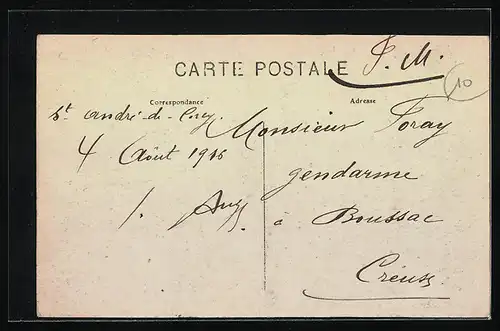 CARTE POSTALE
F. M.
10
Correspondance
Adresse
St andré-de-Corcy
4 Août 1916
Monsieur Foray
gendarme
à Boussac
Creuse